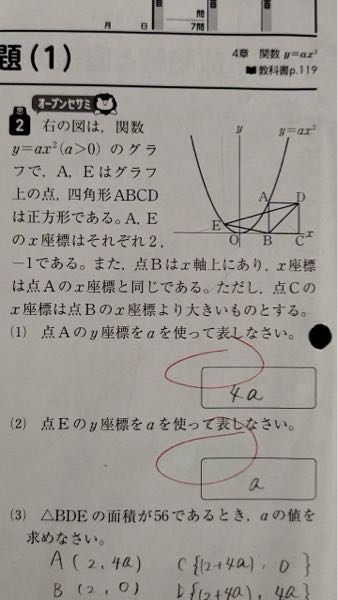 月 日 問 7問
題(1)
4章 関数 y=ax²
教科書p.119
オープンセサミ
2 右の図は，関数
y=ax²(a>0) のグラ
フで，A，Eはグラフ
上の点，四角形ABCD
は正方形である。A，E
のx座標はそれぞれ2，
y y=ax²
A D
E
O B C x
-1である。また，点Bはx軸上にあり，x座標
は点Aのx座標と同じである。ただし，点Cの
x座標は点Bのx座標より大きいものとする。
(1) 点Aのy座標をaを使って表しなさい。
4a
(2) 点Eのy座標をaを使って表しなさい。
a
(3) △BDEの面積が56であるとき，aの値を
求めなさい。
A(2,4a) C{(2+4a), 0}
B(2,0) D{(2+4a), 4a}